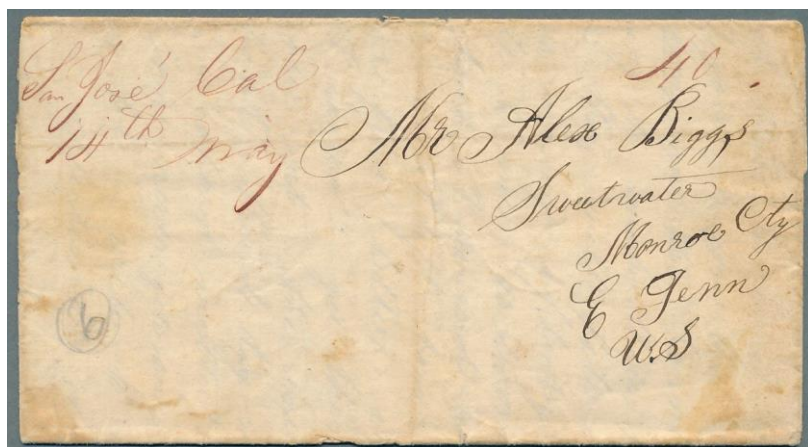 San José Cal
14th May
40
Mr Alex Biggs
Sweetwater
Monroe Cty
E Tenn
U.S
6